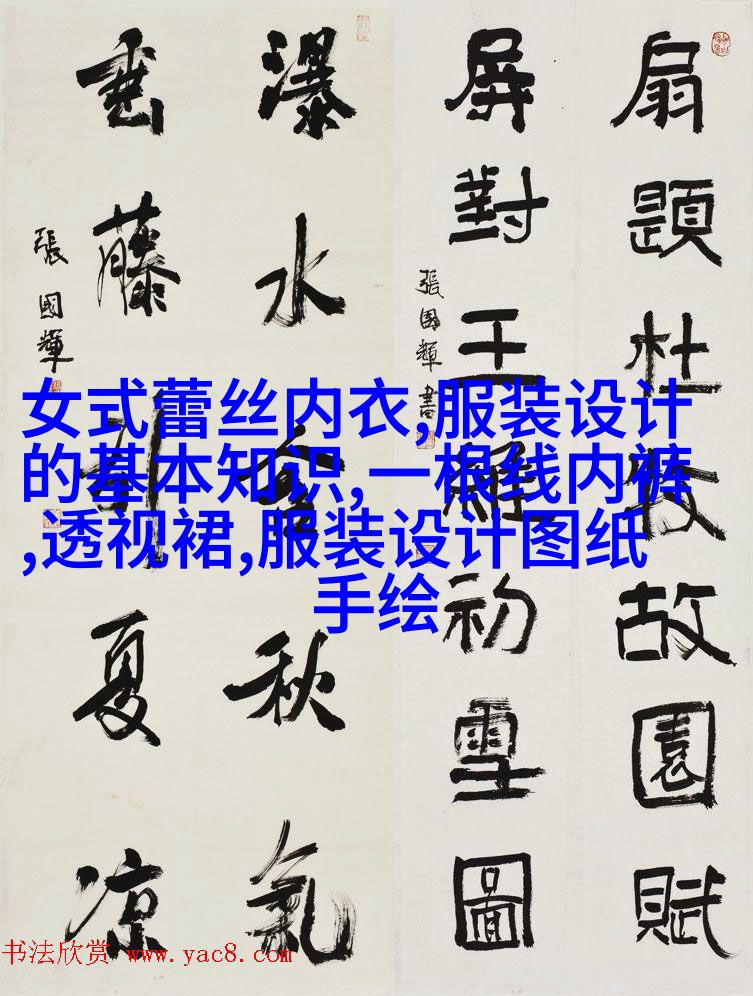 扇題杜牧故園賦
屏對王維初雪圖
張國輝書
瀑水含秋氣
垂藤引夏凉
張國輝
女式蕾丝内衣,服装设计
的基本知识,一根线内裤
,透视裙,服装设计图纸
手绘
书法欣赏 www.yac8.com